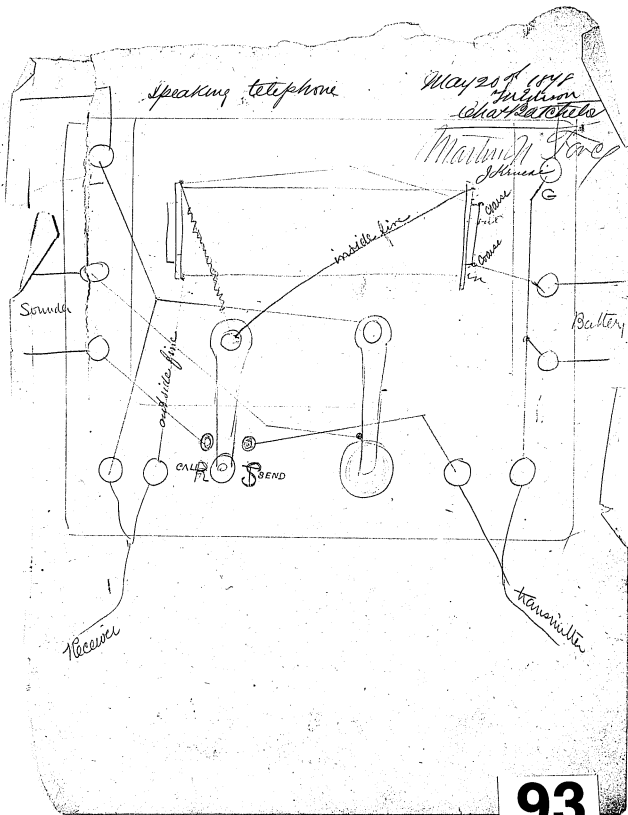 Speaking telephone
May 20th 1878
Chas Batchelor
Martin Force
J Kruesi
G
coarse
fine
inside line
coarse
Sounder
Battery
outside line
CALL
R
S
SEND
Receiver
transmitter
93